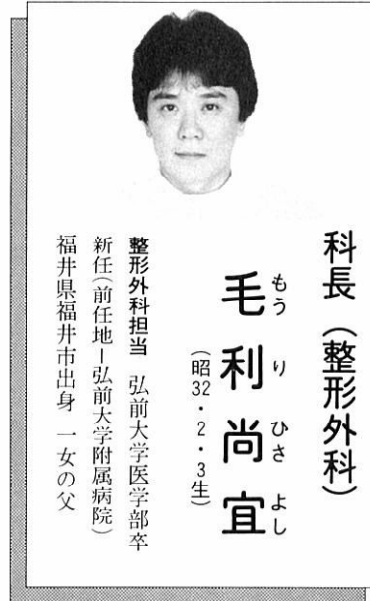 科長（整形外科）
毛利尚宜
もうりひさよし
（昭32・2・3生）
整形外科担当　弘前大学医学部卒
新任（前任地ー弘前大学附属病院）
福井県福井市出身　一女の父